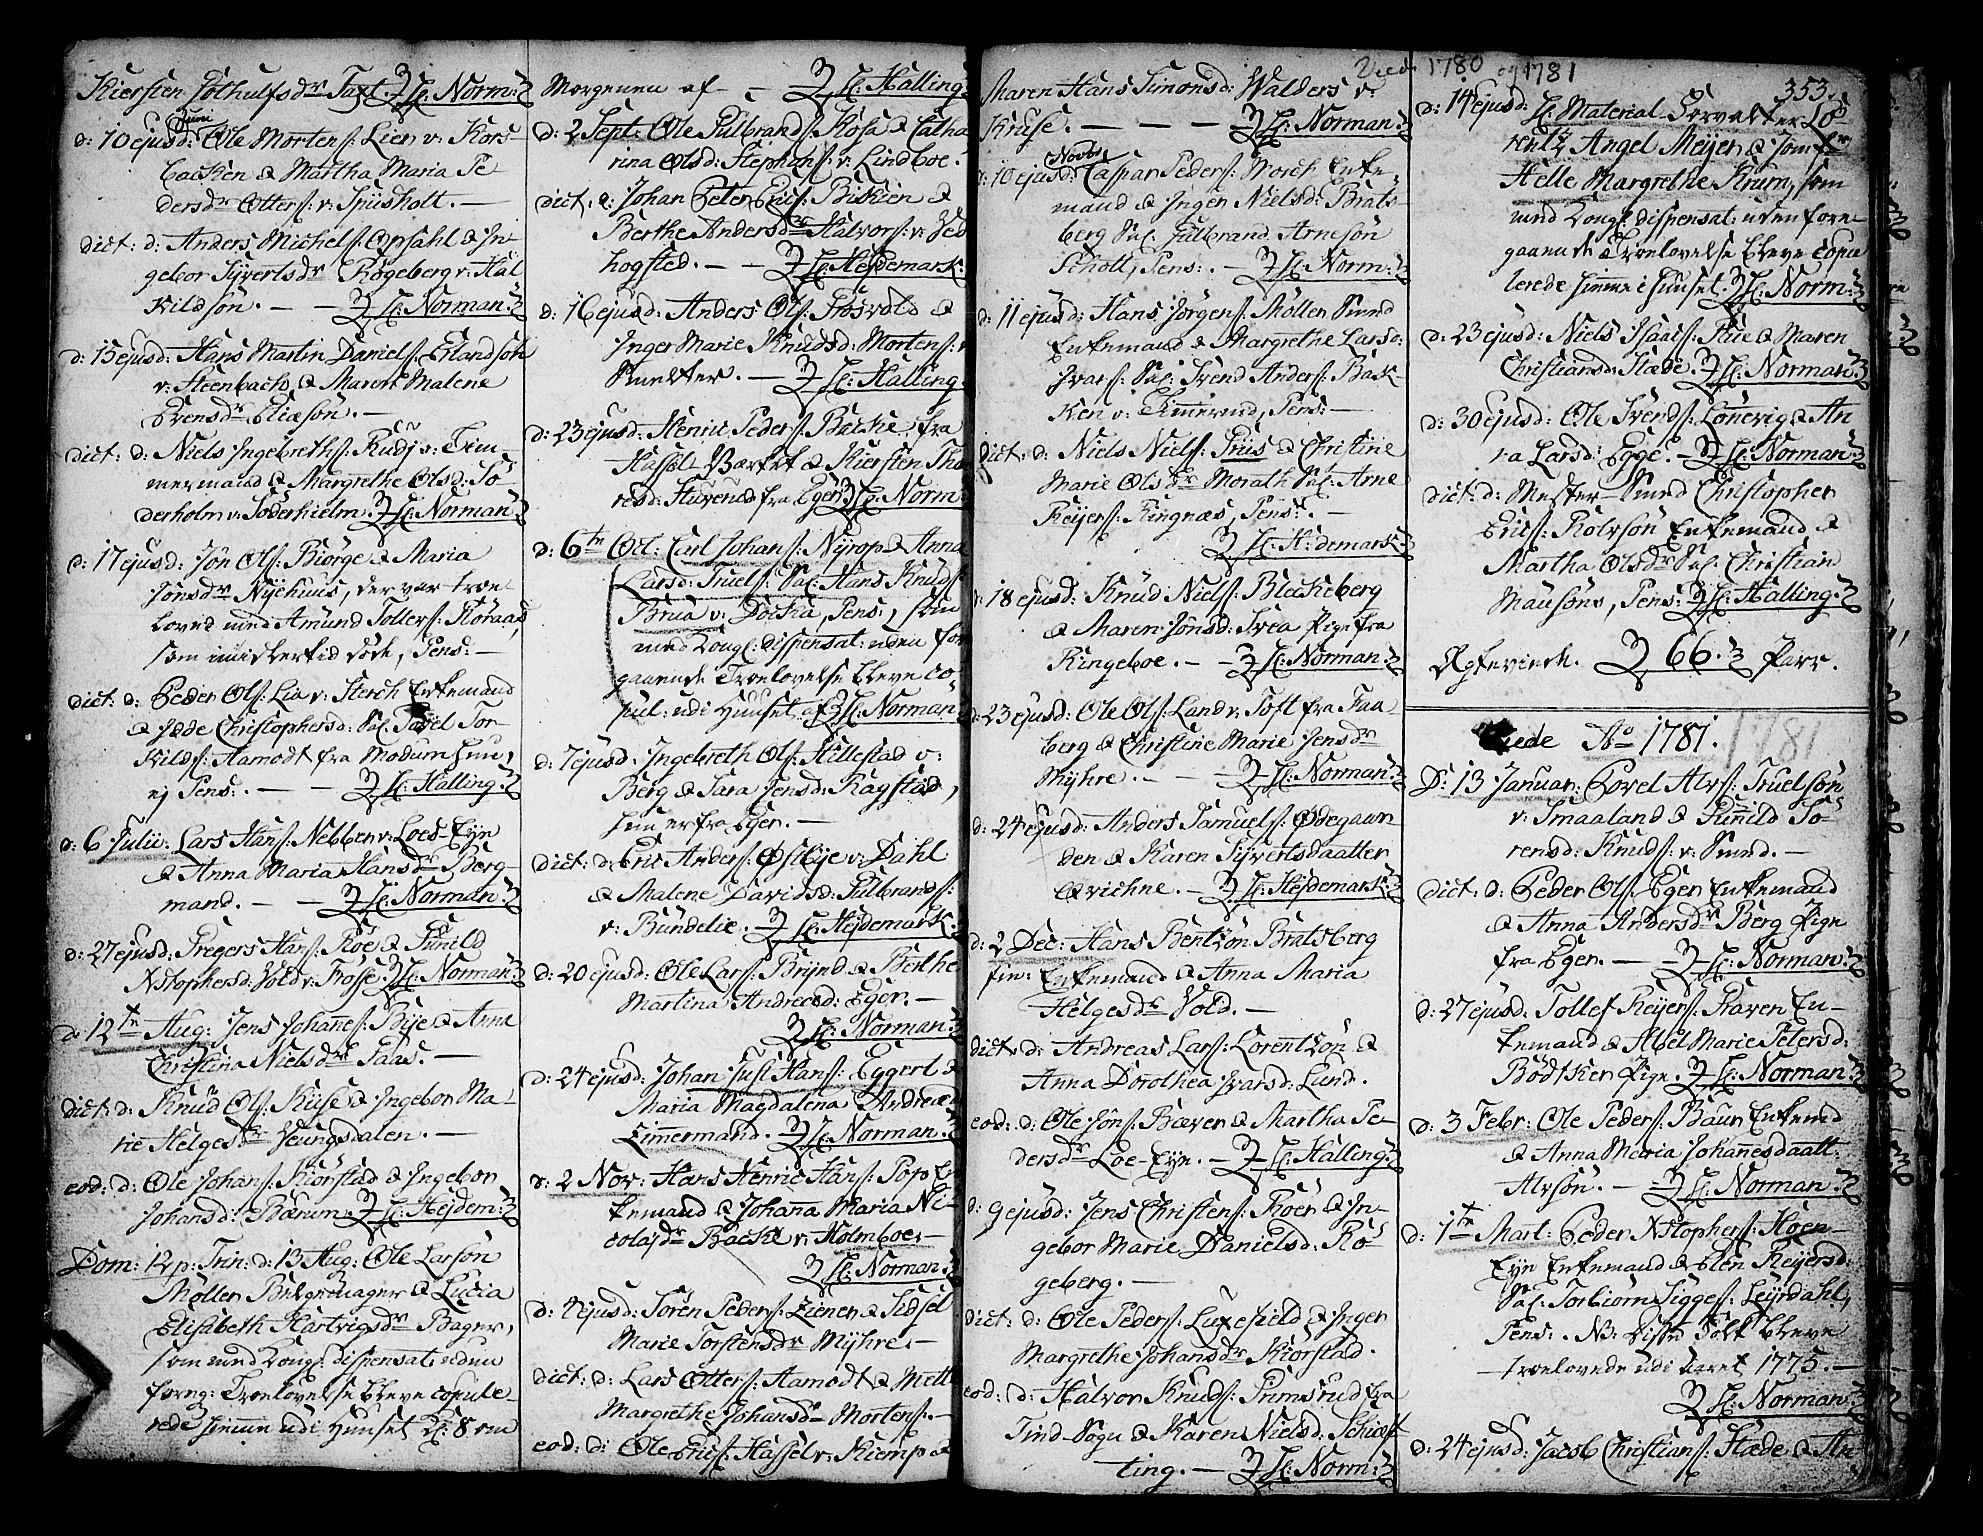 Kiersten Jothulfsdr Taxt. Hr: Norm:
Juni
d: 10 ejusd: Ole Mortens: Lien v: Kors-
backen & Martha Maria Pe-
dersdr Otters: v: Spiisholt. —
dict: d: Anders Michels: Opsahl & In-
gebor Syvertsdr Røgeberg v: Hal
Kildsøn. — — Hr: Norman:
d: 15 ejusd: Hans Martin Daniels: Erlandsøn
v: Steenbach, & Maren Malene
Evensdr Eliæsøn. —
dict: d: Niels Ingebreths: Rudj v: Tim-
mermand & Margrethe Olsd: Sø-
derholm v: Søderhielm. Hr: Norman:
d: 17 ejusd: Jøn Ols: Biørge & Maria
Jønsdr Nyehuus, der var troe-
lovet med Amund Tollefs: Røraas,
som imidlertid døde, Pens: —
dict: d: Peder Ols: Lia v: Sterch Enkemand
& Christophersd: Sal: Torl Tor-
Kilds: Aamodt fra Modum hun,
ej Pens: — — Hr: Halling:
d: 6 Julii: Lars Hans: Nebben v: Loes-Eyn
& Anna Maria Hansdr Berg-
mand. — — Hr: Norman:
d: 27 ejusd: Gregers Hans: Roe & Gunild
Xstophersd: Vold v: Fosse Hr: Norman:
d: 12te Aug: Jens Johannes: Bye & Anna
Christina Nielsdr Faas. —
dict: d: Knud Ols: Kiise & Ingebor Ma-
rie Helgesdr Veungsdalen. —
eod: d: Ole Johans: Kiørstad & Ingebor
Johansd: Bærum. Hr: Hejdem:
Dom: 12 p: Trin: d: 13 Aug: Ole Larsøn
Møller & Lucia
Elisabeth Hartvigsdr Bager,
som med Kongl: dispensat: uden
forng: Troelovelse bleve copule-
rede hiemme udi Huuset Kl: 8 om
Morgenen af — Hr: Halling:
d: 2 Sept: Ole Gulbrands: Kosa & Catha
rina Olsd: Stephans: v: Lindboe.
dict: d: Johan Peter Erics: Biskien &
Berthe Andersdr Halvors: v: Ved
hogsted. — — Hr: Hejdemark:
d: 16 ejusd: Anders Ols: Frosvold &
Inger Marie Knudsd: Mortens: v
Smelter. — Hr: Halling:
d: 23 ejusd: Henric Peders: Backe fra
Hassel-Værket & Kiersten Tho
resd: Stuvend fra Eger Hr: Norm:
d: 6te Oct: Carl Johans: Nyrop & Anna
Larsd: Truels: Sal: Hans Knuds:
Brua v: Dockia, Pens:, som
med Kongl: dispensat: uden for
gaaende Troelovelse bleve co-
pul: udi Huuset af Hr: Norman
d: 7 ejusd: Ingebreth Ols: Hillestad v:
Berg & Sara Jensd: Ragstad,
hun er fra Eger. —
dict: d: Eric Anders: Østbye v: Dahl
& Malene Davidsd: Gulbrands:
v: Bundelie. Hr: Hejdemark:
d: 20 ejusd: Ole Lars: Brynd & Berthe
Martina Andreæd: Eger. —
Hr: Norman:
d: 24 ejusd: Johan Just Hans: Eggert &
Maria Magdalena Andreæd
Zimmermand. Hr: Norman:
d: 2 Nov: Hans Henric Hans: Pop En
kemand & Johanna Maria Ni-
colajdr Backe v: Holmboe. —
Hr: Norman:
d: 4 ejusd: Søren Peders: Ziener & Sidsel
Marie Torstensdr Myhre. —
dict: d: Lars Otters: Aamodt & Mette
Margrethe Johansdr Mortens: —
eod: d: Ole Erics: Hassel v: Kiemp &
Viede 1780 og 1781
353.
Maren Hans Simonsd: Walders v:
Kruse. — — — Hr: Norman:
Novbr
d: 10 ejusd: Caspar Peders: Morch Enke-
mand & Inger Nielsd: Brats-
berg Sal: Gulbrand Arnesøn
Scholt, Pens: — Hr: Norm:
d: 11 ejusd: Hans Jørgens: Møller Smed
Enkemand & Margrethe Larsd:
Ivars: Sal: Svend Anders: Back-
Ken v: Timmerud, Pens: —
dict: d: Niels Niels: Friis & Christine
Marie Olsdr Morath Sal: Arne
Reijers: Ringnæs, Pens: —
Hr: H:demark:
d: 18 ejusd: Knud Niels: Blackeberg
& Maren Jønsd: Svea Pige fra
Ringeboe. — — Hr: Norman:
d: 23 ejusd: Ole Ols: Land v: Toft fra Faa-
berg & Christine Marie Jensdr
Myhre. — — Hr: Norman:
d: 24 ejusd: Anders Samuels: Ødegaar-
den & Karen Syvertsdaatter
Qvichne. — Hr: Hejdemark:
d: 2 Dec: Hans Bentzøn Bratsberg
fin: Enkemand & Anna Maria
Helgesdr Vold. —
dict: d: Andreas Lars: Lorentzøn &
Anna Dorothea Ivarsd: Lund.
eod: d: Ole Jøns: Bæver & Martha Pe-
dersdr Loe-Eyn. — Hr: Halling:
d: 9 ejusd: Jens Christens: Roer & In-
gebor Marie Danielsd: Rø-
geberg. —
dict: d: Ole Peders: Luxefield & Inger
Margrethe Johansdr Kiørstad.
eod: d: Halvor Knuds: Grimsrud fra
Tind Sogn & Karen Nielsd: Schieft
ting. — Hr: Norm:
d: 14 ejusd: Hr: Material-Forvalter Lo-
rentz Angel Meijer & Jomfr
Helle Margrethe Krum, som
med Kongl: dispensat: uden fore-
gaaende Troelovelse bleve copu
lerede hiemme i Huuset. Hr: Norm:
d: 23 ejusd: Niels Isaacs: Hue & Maren
Christiansd: Hæde. Hr: Norman:
d: 30 ejusd: Ole Svends: Lønevig & An
na Larsd: Egge. — Hr: Norman:
dict: d: Mester-Smed Christopher
Erics: Rolvsøn Enkemand &
Martha Olsdr Sal: Christian
Mausøns, Pens: Hr: Halling:
Ægteviede. 66. Parr.
Viede Ao 1781. 1781
D: 13 Januar: Povel Alvs: Truelsøn
v: Smaaland & Gunild So-
rensd: Knuds: v: Smed. —
dict: d: Peder Ols: Eger Enkemand
& Anna Andersdr Berg Pige
fra Eger. — — Hr: Norman:
d: 27 ejusd: Tollef Reijers: Fraven En-
kemand & Abel Marie Petersd:
Bødtker Pige. Hr: Norman:
d: 3 Febr: Ole Peders: Baur Enkemd
& Anna Maria Johannesdaatt:
Alvsøn. — Hr: Norman:
d: 1te Mart: Peder Xstophers: Hoen-
Eyn Enkemand & Elen Reijersd:
Sal: Torbiørn Sigges: Leyrdahl,
Pens: NB: disse Folk bleve
troelovede udi Aaret 1775. —
Hr: Norman:
d: 24 ejusd: Jacob Christians: Hæde & An